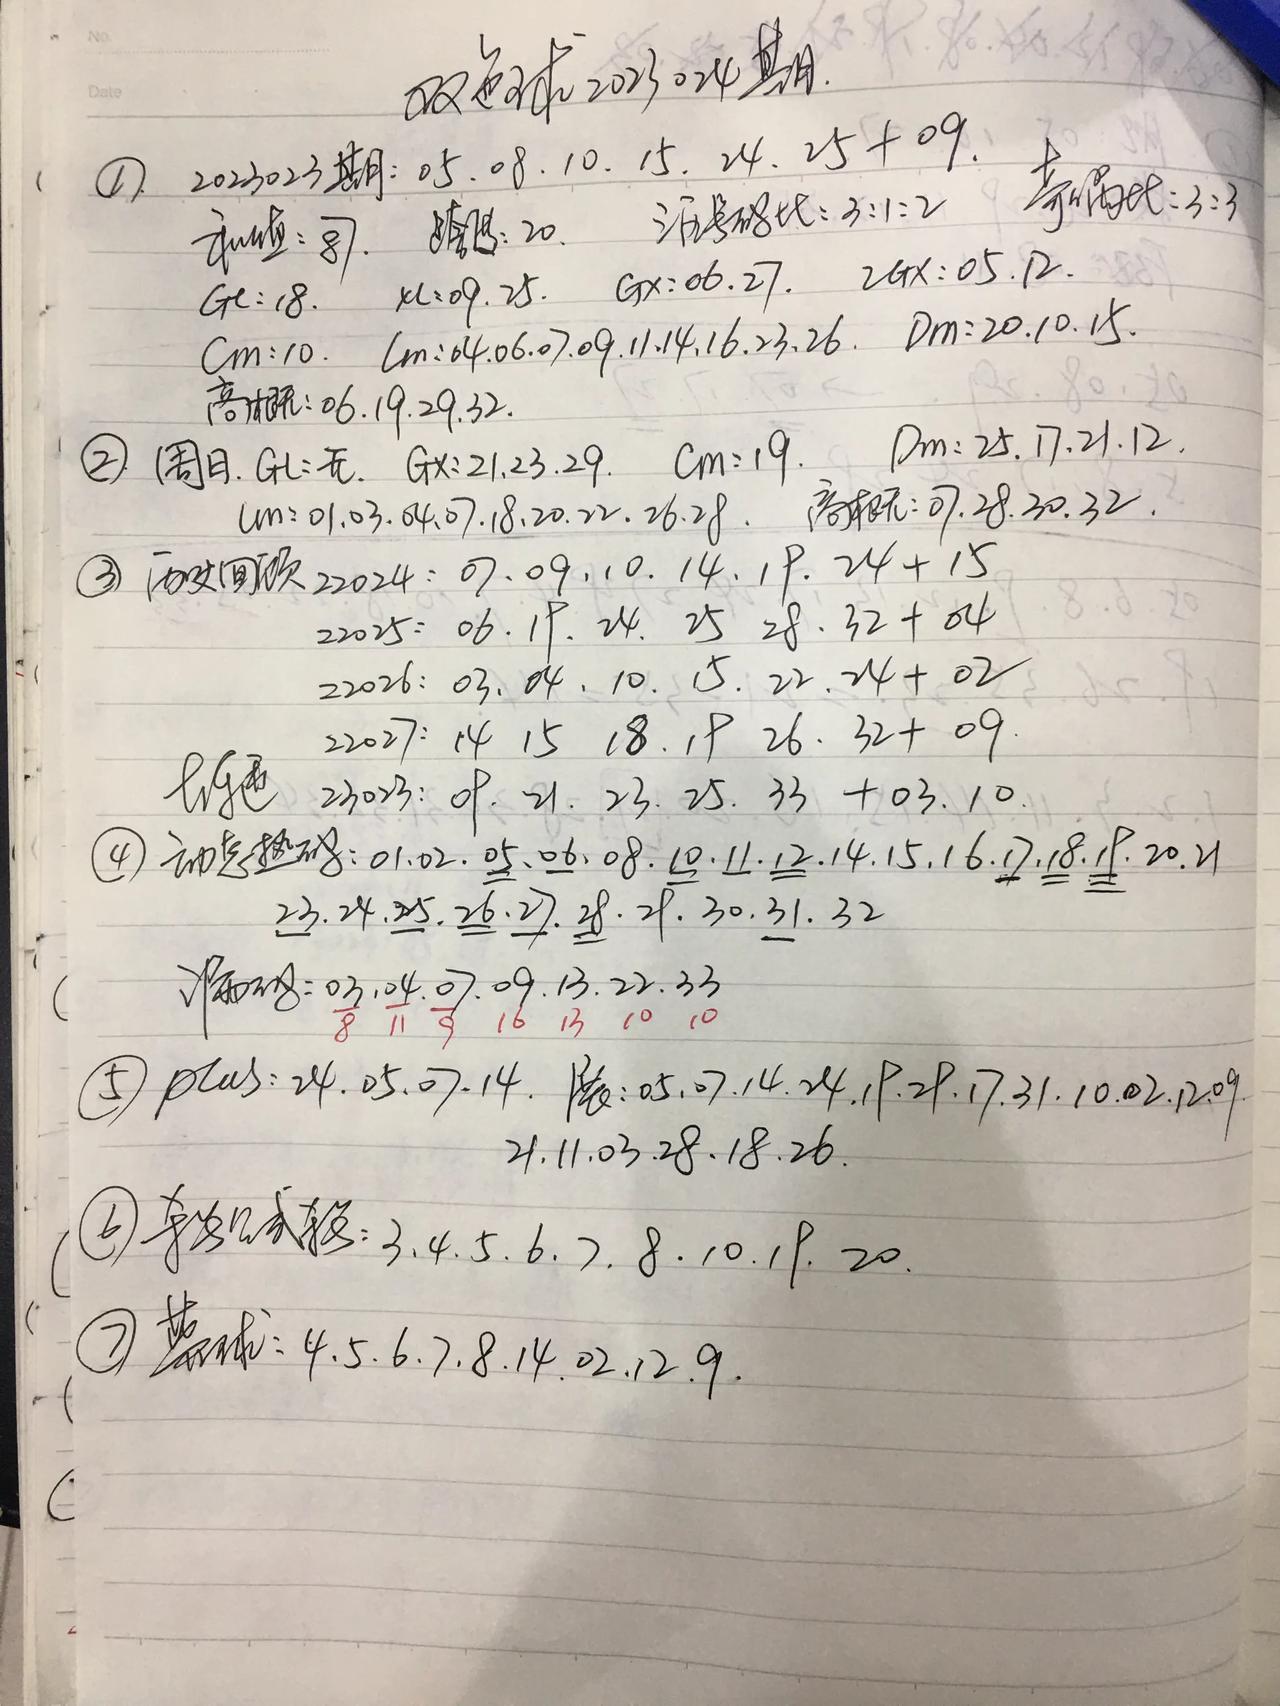 No.
Date
双色球2023024期.
① 2023023期: 05.08.10.15.24.25+09.
和值:87. 跨度:20. 号码比:3:1:2 奇偶比:3:3
GL:18. XL:09.25. GX:06.27. 2GX:05.12.
Cm:10. Lm:04.06.07.09.11.14.16.23.26. Dm:20.10.15.
高概:06.19.29.32.
② 周日. GL:无. GX:21.23.29. Cm:19. Dm:25.17.21.12.
Lm:01.03.04.07.18.20.22.26.28. 高概:07.28.30.32.
③ 历史回顾 22024: 07.09.10.14.19.24+15
22025: 06.19.24.25 28.32+04
22026: 03.04.10.15.22.24+02
22027: 14 15 18.19 26.32+09.
23023: 09.21.23.25.33 +03.10.
④ 动态热码:01.02.05.06.08.10.11.12.14.15.16.17.18.19.20.21
23.24.25.26.27.28.29.30.31.32
码:03.04.07.09.13.22.33
8 11 9 16 13 10 10
⑤ plus:24.05.07.14. 05.07.14.24.19.29.17.31.10.02.12.09
21.11.03.28.18.26.
⑥ 3.4.5.6.7.8.10.19.20.
⑦ 蓝球:4.5.6.7.8.14.02.12.9.